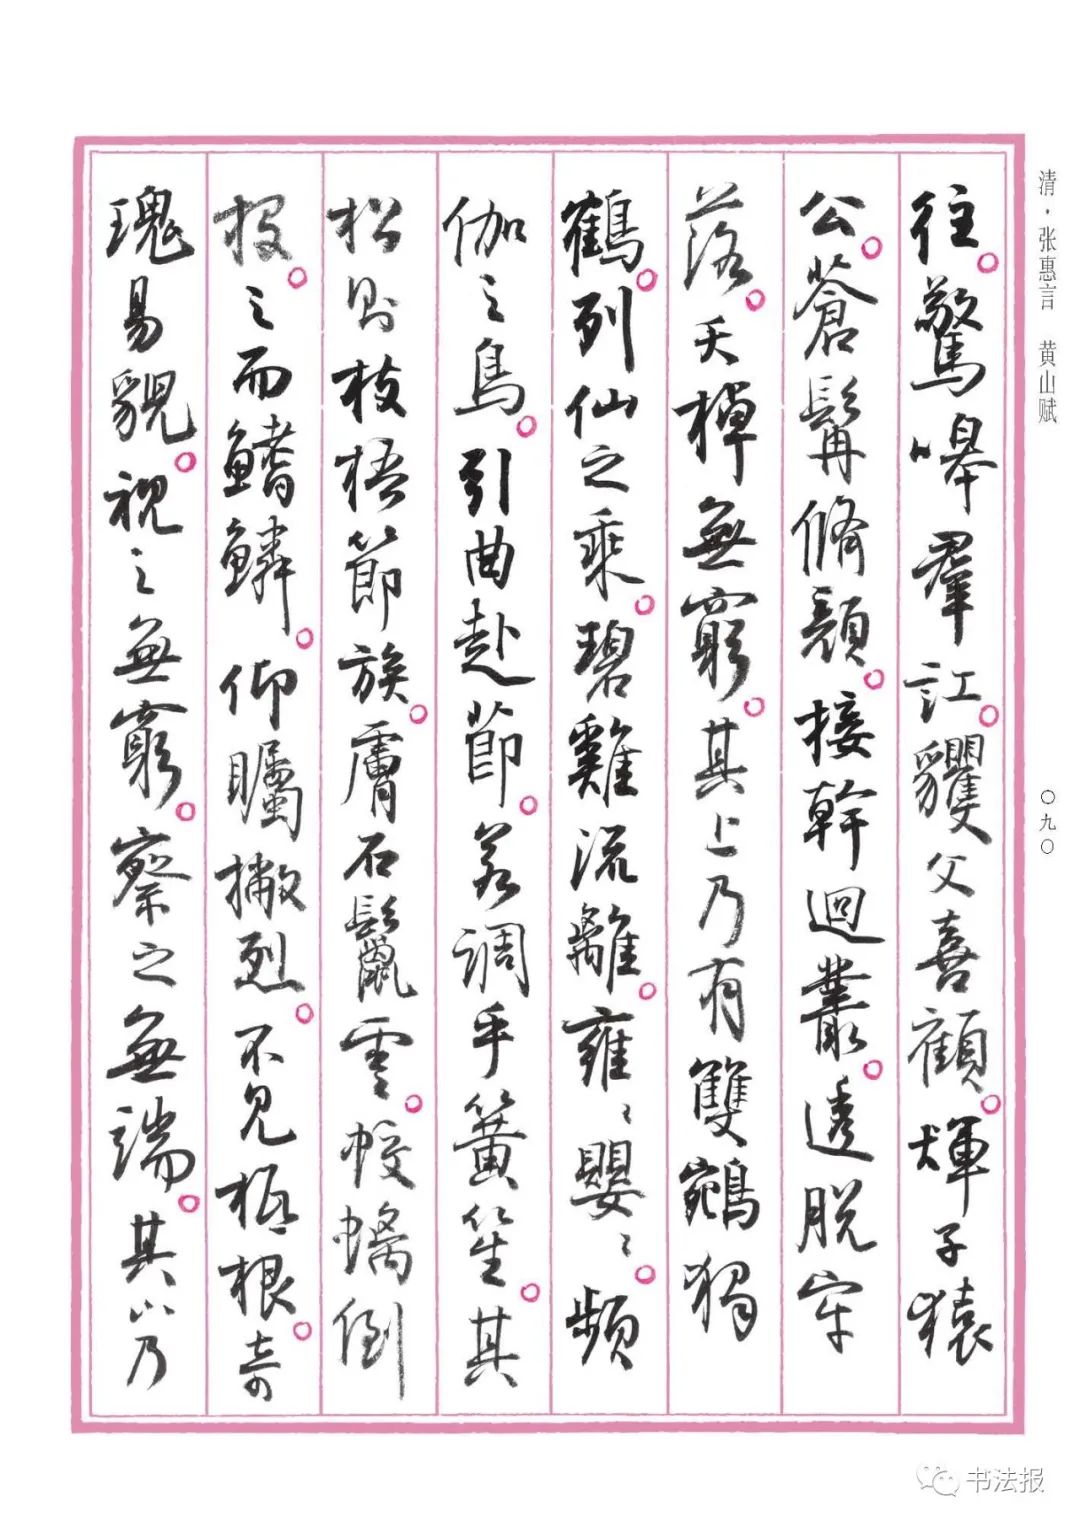 清·张惠言　黄山赋
往。驚嗥羣訌。玃父喜顧。㺔子猿
公。蒼髯脩顏。接幹迴叢。透脫牢
落。夭棹無窮。其上乃有雙鵷獨
鶴。列仙之乘。碧雞流離。雍〻嬰〻。頻
伽之鳥。引曲赴節。若調乎簧笙。其
松則枝梧節族。膚石鬣雲。蛟螭倒
投。之而鰭鱗。仰矚撇烈。不見柢根。奇
瑰易貌。視之無窮。察之無端。其岑乃
〇九〇
书法报